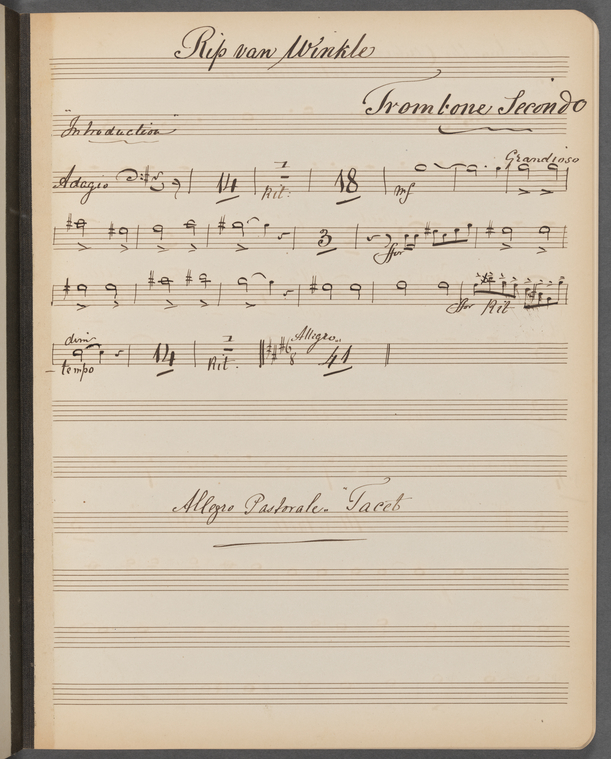 Rip van Winkle
Trombone Secondo
"Introduction"
Grandioso
Adagio 14 1 Rit: 18 mf
3 sfor
sfor Rit
dim Allegro.
tempo 14 1 Rit. 6 8 41
Allegro Pastorale. Tacet